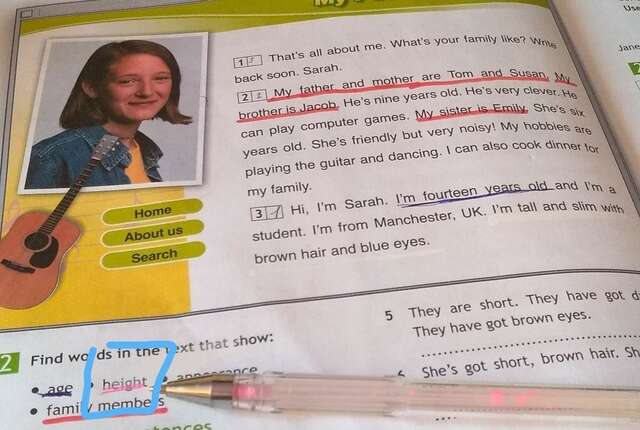 1 That's all about me. What's your family like? Write
back soon. Sarah.
2 My father and mother are Tom and Susan. My
brother is Jacob. He's nine years old. He's very clever. He
can play computer games. My sister is Emily. She's six
years old. She's friendly but very noisy! My hobbies are
playing the guitar and dancing. I can also cook dinner for
my family.
3 Hi, I'm Sarah. I'm fourteen years old and I'm a
student. I'm from Manchester, UK. I'm tall and slim with
brown hair and blue eyes.
Home
About us
Search
2 Find words in the text that show:
• age • height •
• family members
5 They are short. They have got
They have got brown eyes.
She's got short, brown hair.
Jane